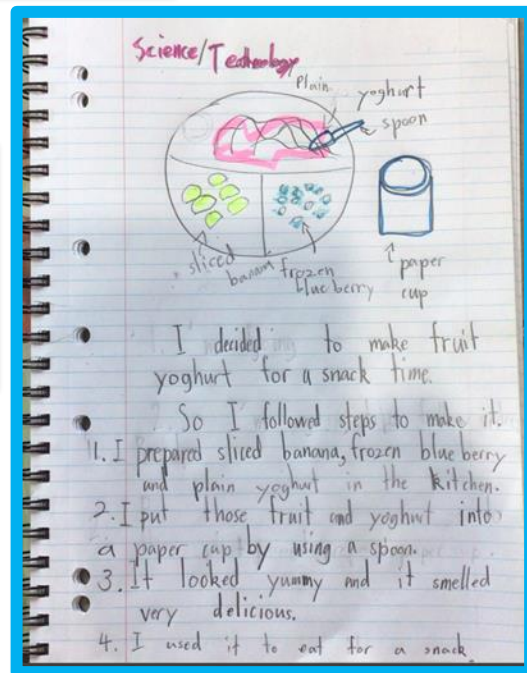 Science/Technology
Plain
yoghurt
spoon
sliced
banana
frozen
blue berry
paper
cup
I decided to make fruit
yoghurt for a snack time.
So I followed steps to make it.
1. I prepared sliced banana, frozen blue berry
and plain yoghurt in the kitchen.
2. I put those fruit and yoghurt into
a paper cup by using a spoon.
3. It looked yummy and it smelled
very delicious.
4. I used it to eat for a snack